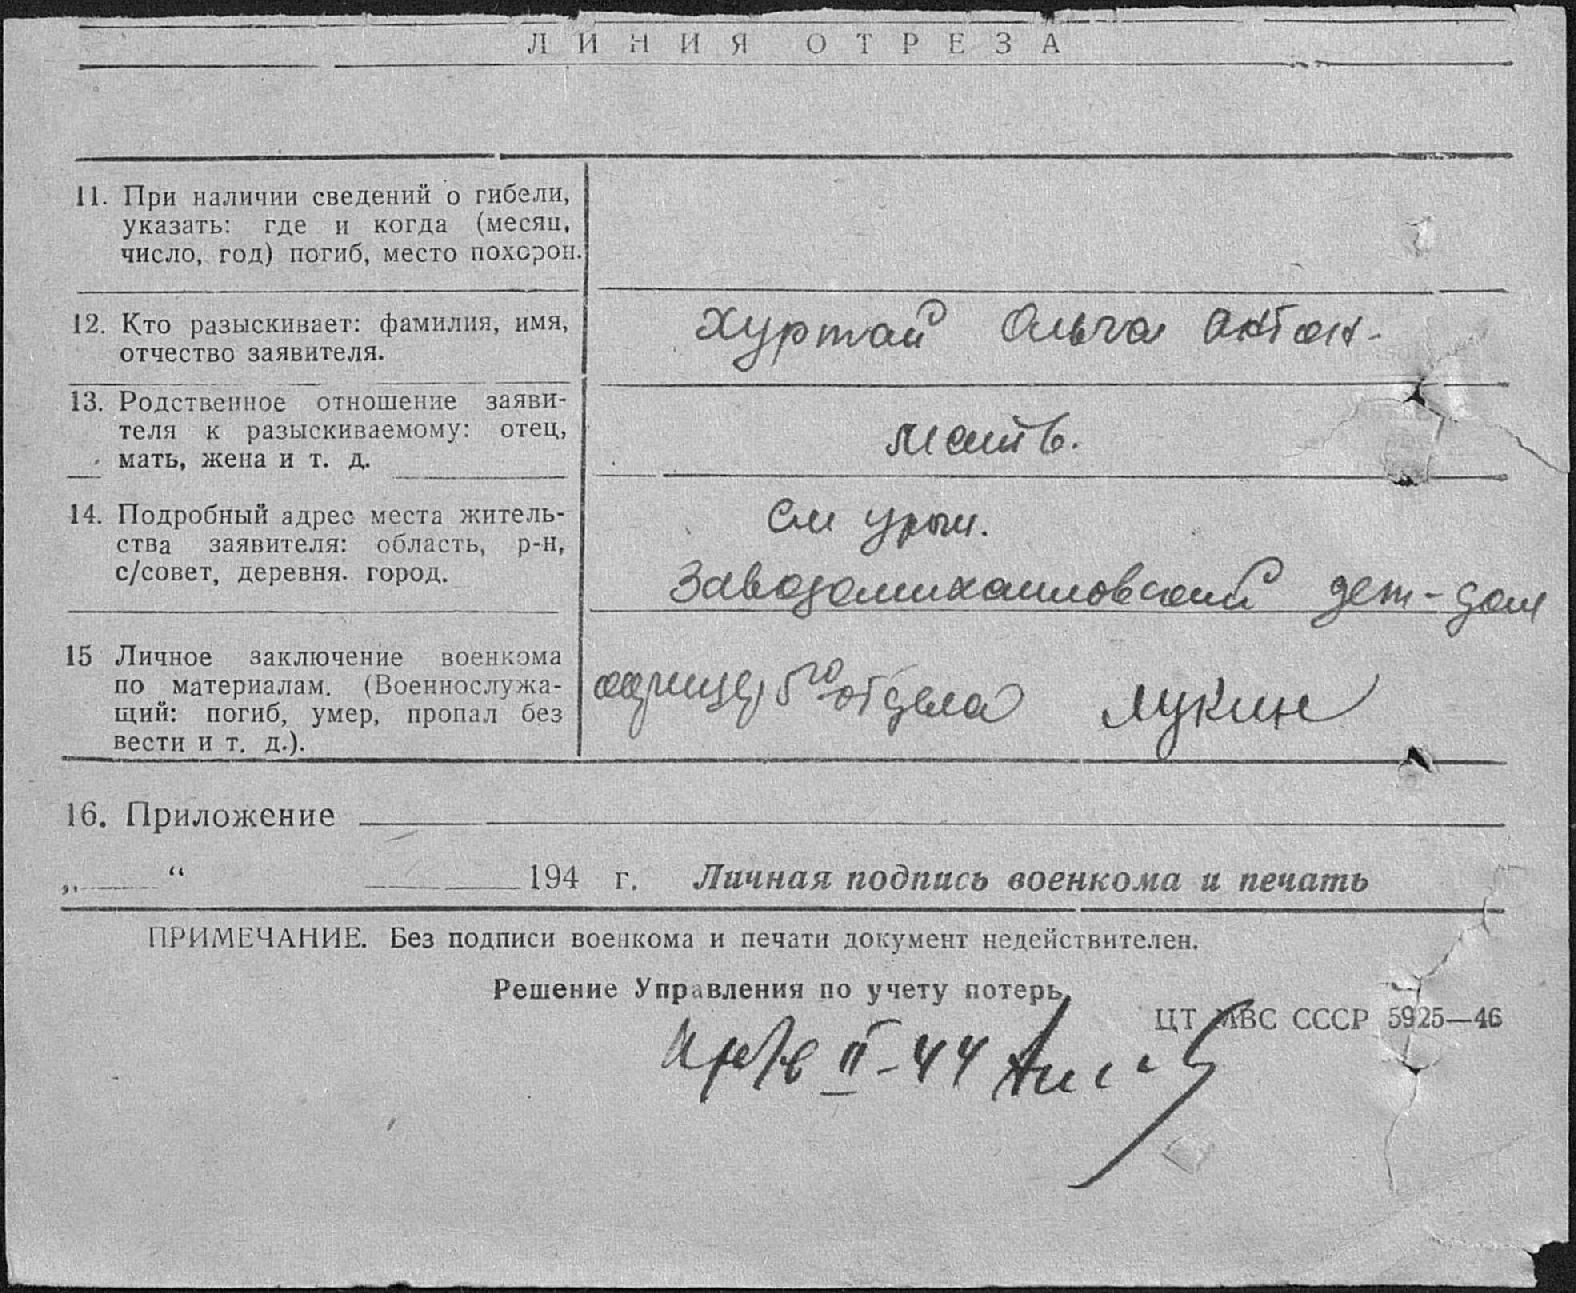 ЛИНИЯ ОТРЕЗА
11. При наличии сведений о гибели,
указать: где и когда (месяц,
число, год) погиб, место похорон.
12. Кто разыскивает: фамилия, имя,
отчество заявителя.
Хуртай Ольга Антон.
13. Родственное отношение заяви-
теля к разыскиваемому: отец,
мать, жена и т. д.
мать.
14. Подробный адрес места житель-
ства заявителя: область, р-н,
с/совет, деревня. город.
См
дет-дом
15 Личное заключение военкома
по материалам. (Военнослужа-
щий: погиб, умер, пропал без
вести и т. д.).
офицер 5го отдела Лукин
16. Приложение
„ “ 194 г. Личная подпись военкома и печать
ПРИМЕЧАНИЕ. Без подписи военкома и печати документ недействителен.
Решение Управления по учету потерь
ЦТ МВС СССР 5925—46
пр/б в II-44